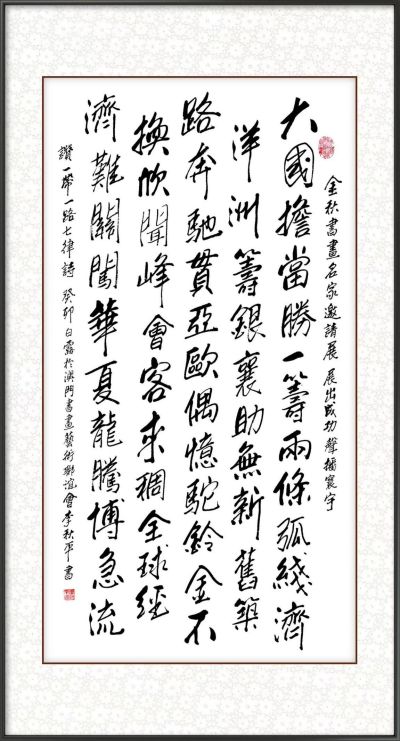 金秋書畫名家邀請展 展出成功 聲播寰宇
大國擔當勝一籌兩條弧綫濟
洋洲籌銀襄助無新舊築
路奔馳貫亞歐偶憶駝鈴金不
換欣聞峰會客來稠全球經
濟難關闖華夏龍騰博急流
讚一帶一路七律詩 癸卯白露於澳門書畫藝術聯誼會李秋平書